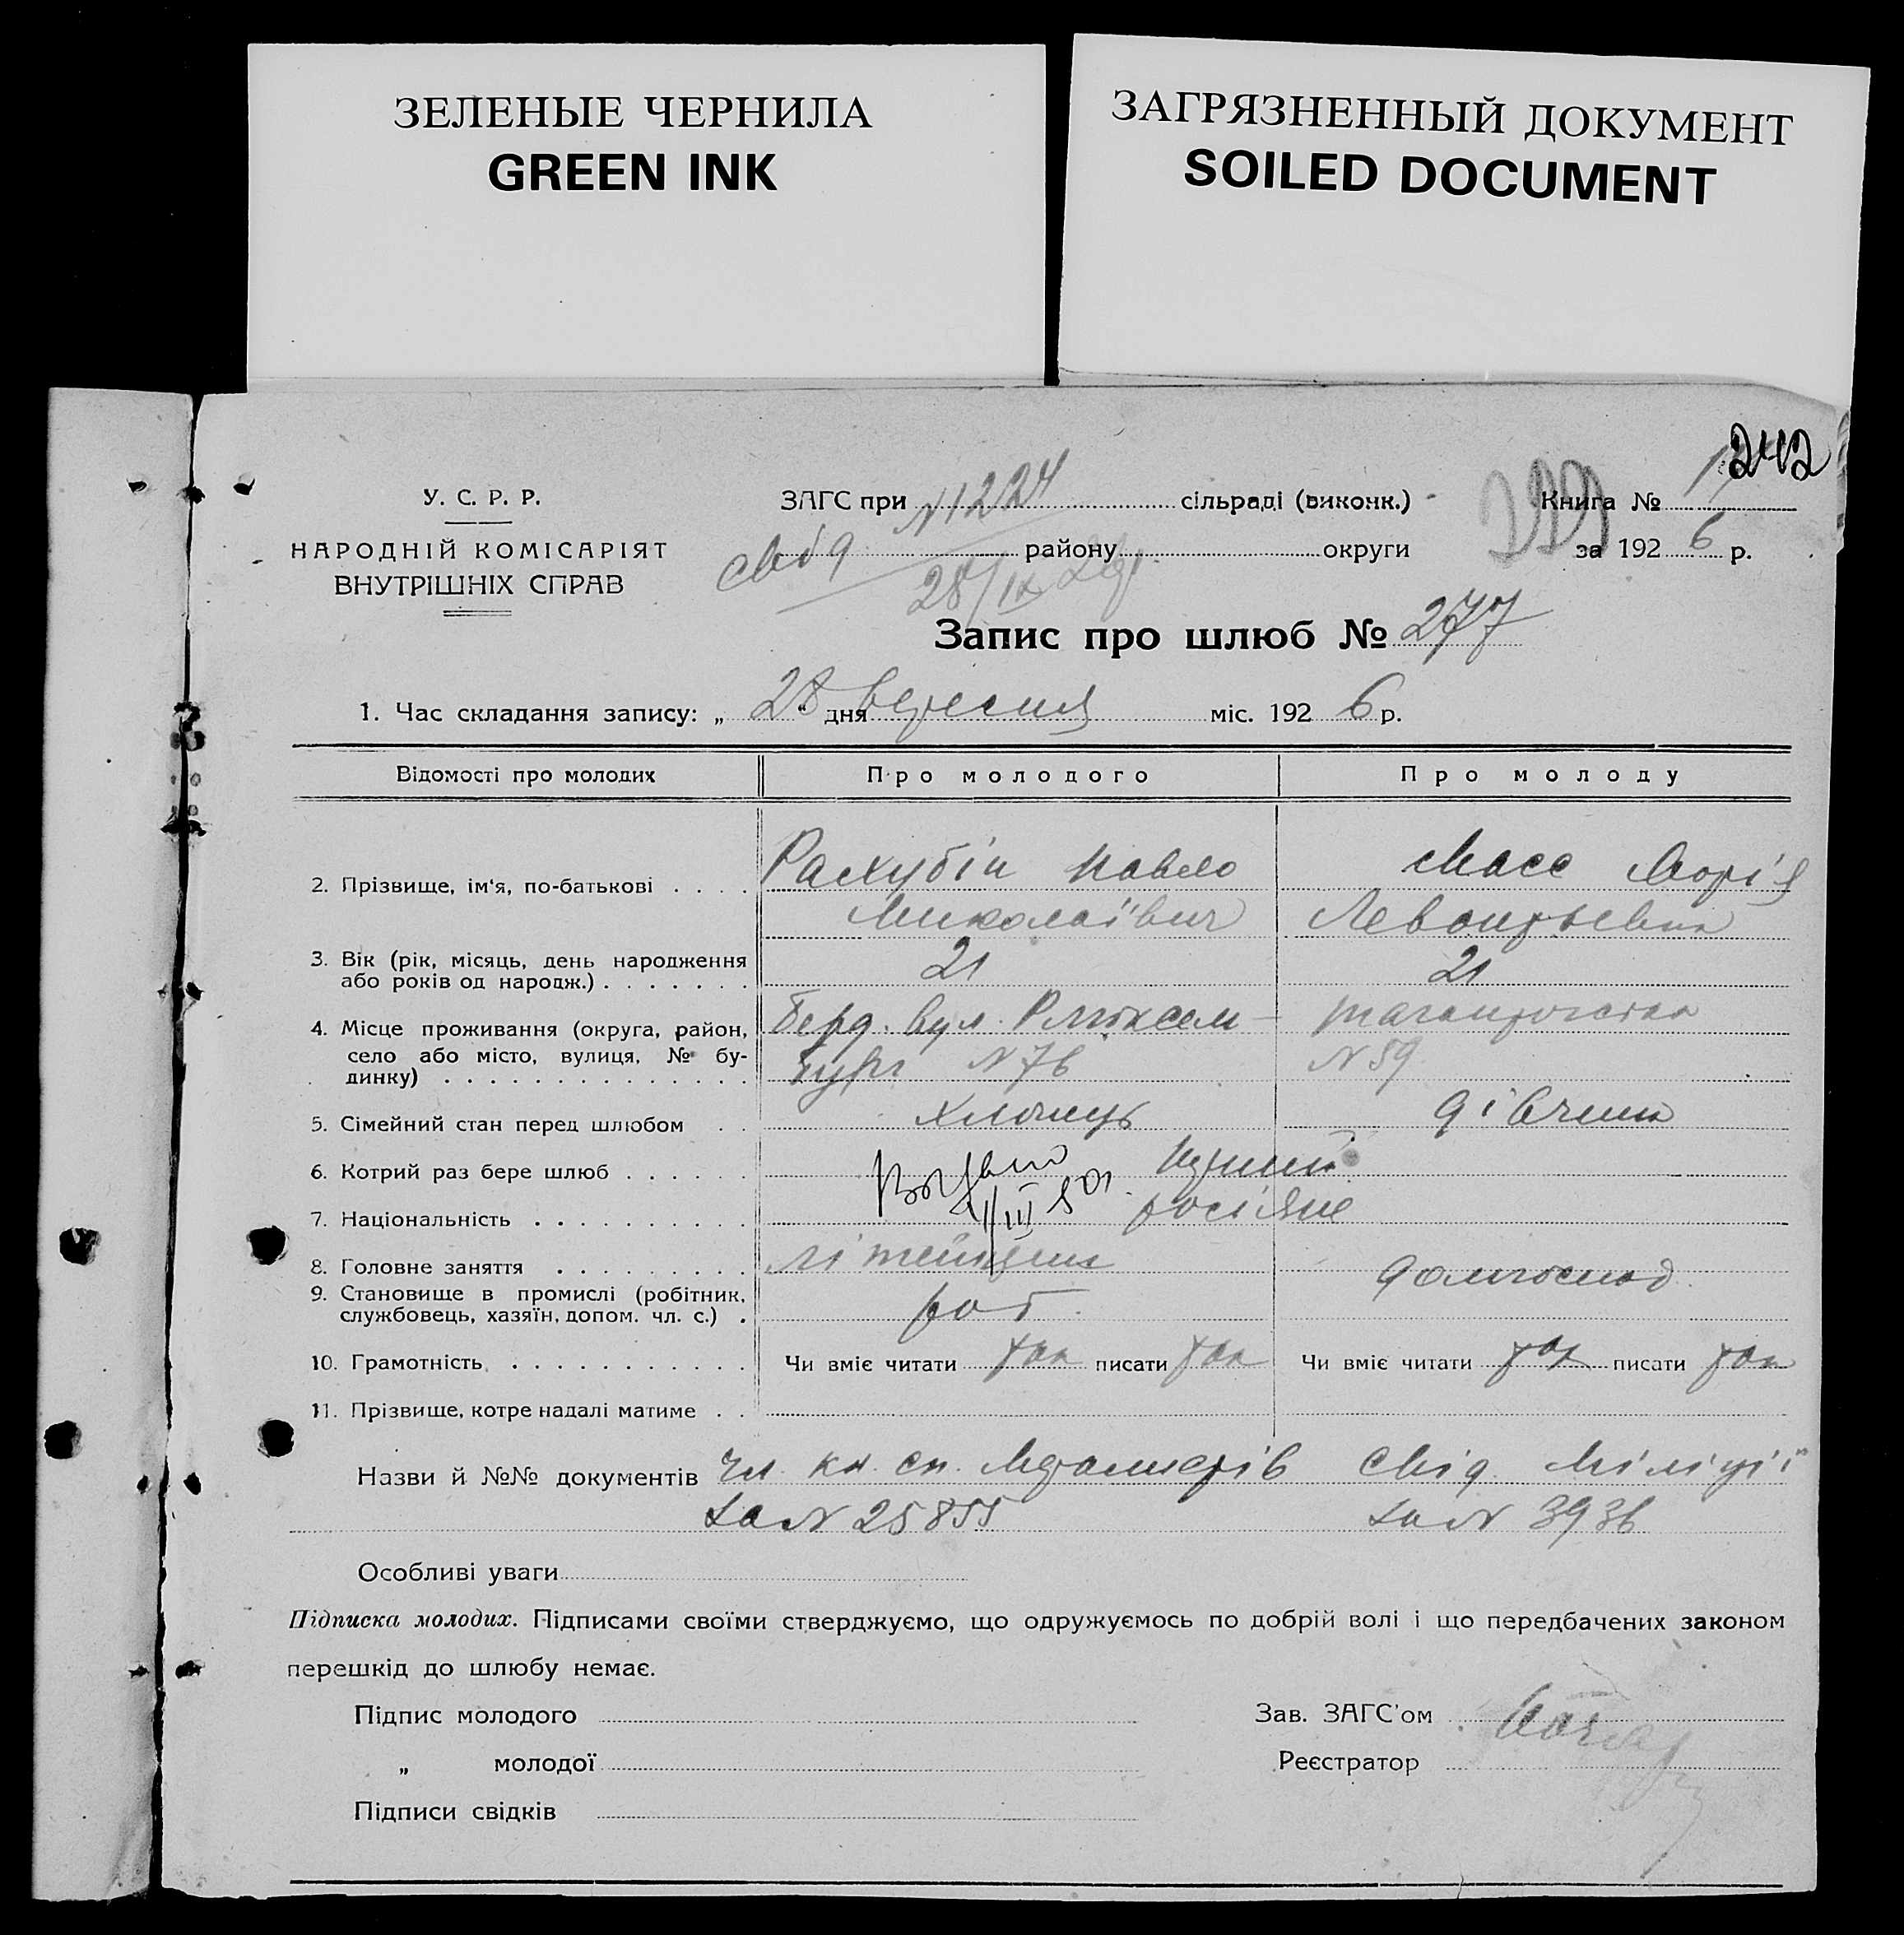 ЗЕЛЕНЫЕ ЧЕРНИЛА
GREEN INK
ЗАГРЯЗНЕННЫЙ ДОКУМЕНТ
SOILED DOCUMENT
242
У. С. Р. Р.
НАРОДНІЙ КОМІСАРІЯТ
ВНУТРІШНІХ СПРАВ
ЗАГС при N 1224 сільраді (виконк.)
району округи
28/IX 26р.
Книга №
за 1926 р.
Запис про шлюб № 277
1. Час складання запису: „28“ дня вересня міс. 1926 р.
Відомості про молодих
Про молодого
Про молоду
2. Прізвище, ім'я, по-батькові . . . .
Павло
Миколаївич
Масс Марія
Левонтьевна
3. Вік (рік, місяць, день народження
або років од народж.) . . . . . . .
21
21
4. Місце проживання (округа, район,
село або місто, вулиця, № бу-
динку) . . . . . . . . . . . . . .
Берд. вул. Рлюксем-
бург N 76
таганрогская
N 59
5. Сімейний стан перед шлюбом . .
хлопець
дівчина
6. Котрий раз бере шлюб . . . . . .
перший
7. Національність . . . . . . . . . .
росіяне
8. Головне заняття . . . . . . . . .
літейщик
домгоспод.
9. Становище в промислі (робітник,
службовець, хазяїн, допом. чл. с.) .
роб.
10. Грамотність . . . . . . . . . . .
Чи вміє читати так писати так
Чи вміє читати так писати так
11. Прізвище, котре надалі матиме . .
Назви й №№ документів чл. кн. сп. Металистів свід. міліції
за N 25855 за N 3936
Особливі уваги
Підписка молодих. Підписами своїми стверджуємо, що одружуємось по добрій волі і що передбачених законом
перешкід до шлюбу немає.
Підпис молодого
Зав. ЗАГС'ом
„ молодої
Реєстратор
Підписи свідків